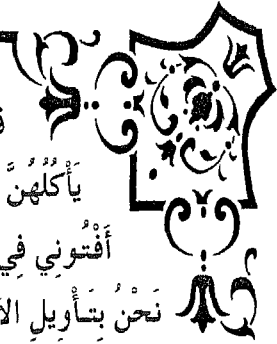 يَأْكُلُهُنَّ
أَفْتُونِي فِي
نَحْنُ بِتَأْوِيلِ